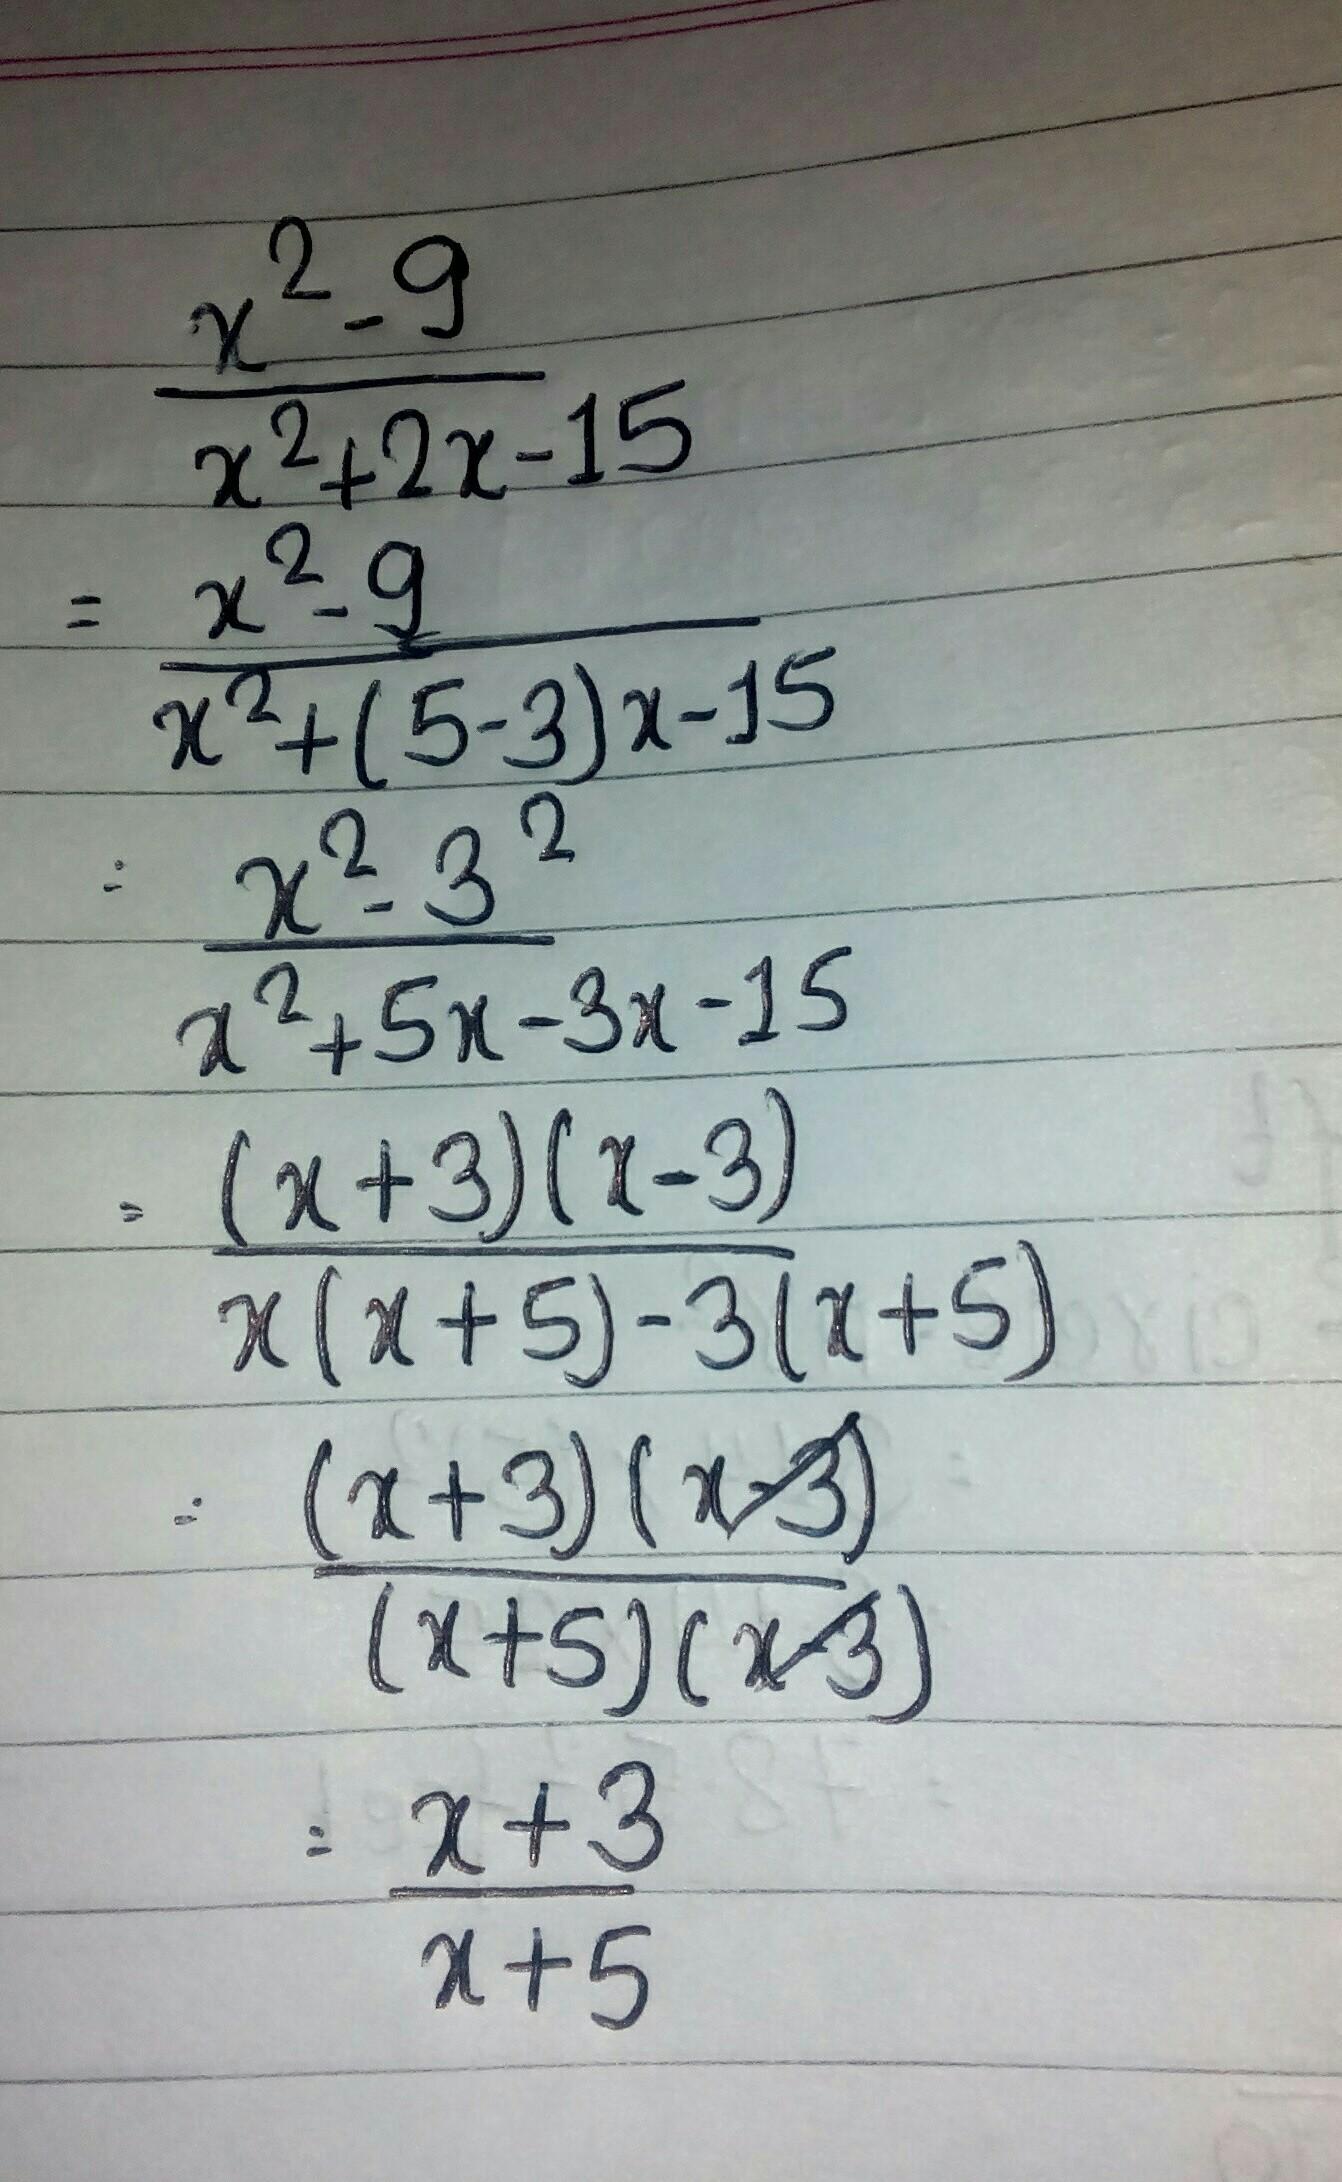 x² - 9
x² + 2x - 15
= x² - 9
x² + (5 - 3)x - 15
= x² - 3²
x² + 5x - 3x - 15
= (x + 3)(x - 3)
x(x + 5) - 3(x + 5)
= (x + 3)(x - 3)
(x + 5)(x - 3)
= x + 3
x + 5